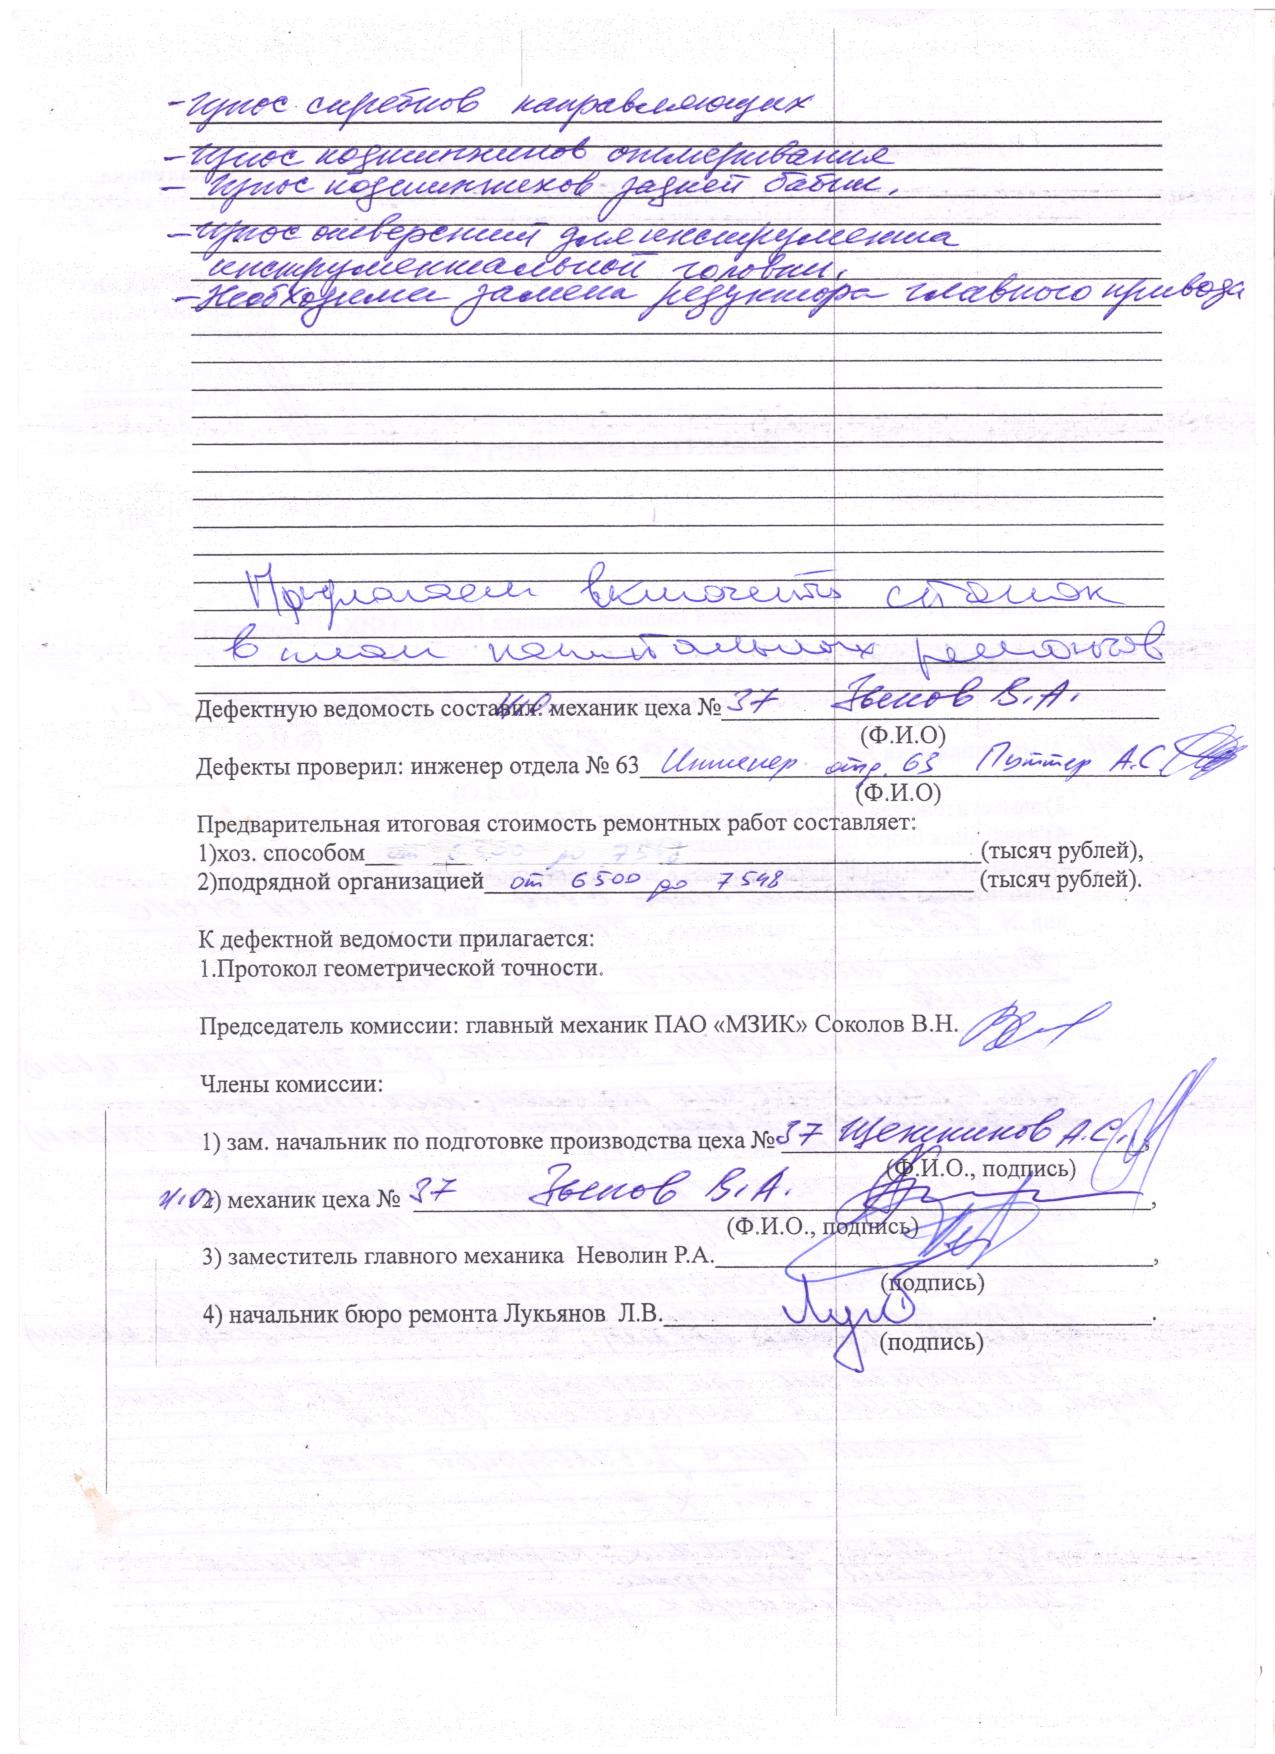 - Износ скребков направляющих
- Износ подшипников
- Износ подшипников задней бабки.
- Износ отверстий для инструмента
инструментальной головки.
- Необходима замена редуктора главного привода
Предлагаем включить станок
в план капитальных ремонтов
Дефектную ведомость составил: и.о. механик цеха № 37 Зыков В.А.
(Ф.И.О)
Дефекты проверил: инженер отдела № 63 Инженер отд. 63 Путтер А.С.
(Ф.И.О)
Предварительная итоговая стоимость ремонтных работ составляет:
1)хоз. способом от 6500 до 7548 (тысяч рублей),
2)подрядной организацией от 6500 до 7548 (тысяч рублей).
К дефектной ведомости прилагается:
1.Протокол геометрической точности.
Председатель комиссии: главный механик ПАО «МЗИК» Соколов В.Н.
Члены комиссии:
1) зам. начальник по подготовке производства цеха № 37 А.С.,
(Ф.И.О., подпись)
и.о. 2) механик цеха № 37 Зыков В.А. ,
(Ф.И.О., подпись)
3) заместитель главного механика Неволин Р.А. ,
(подпись)
4) начальник бюро ремонта Лукьянов Л.В. .
(подпись)